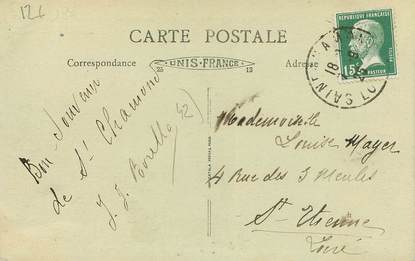 126
CARTE POSTALE
Correspondance
UNIS-FRANCE
25 12
Adresse
RÉPUBLIQUE FRANÇAISE
15c
POSTES
PASTEUR
SAINT
Bon Souvenir
de St Chamond
J. J. Borella
42
Mademoiselle
Louise Mayer
4 Rue des 3 Meules
St-Etienne
Loire